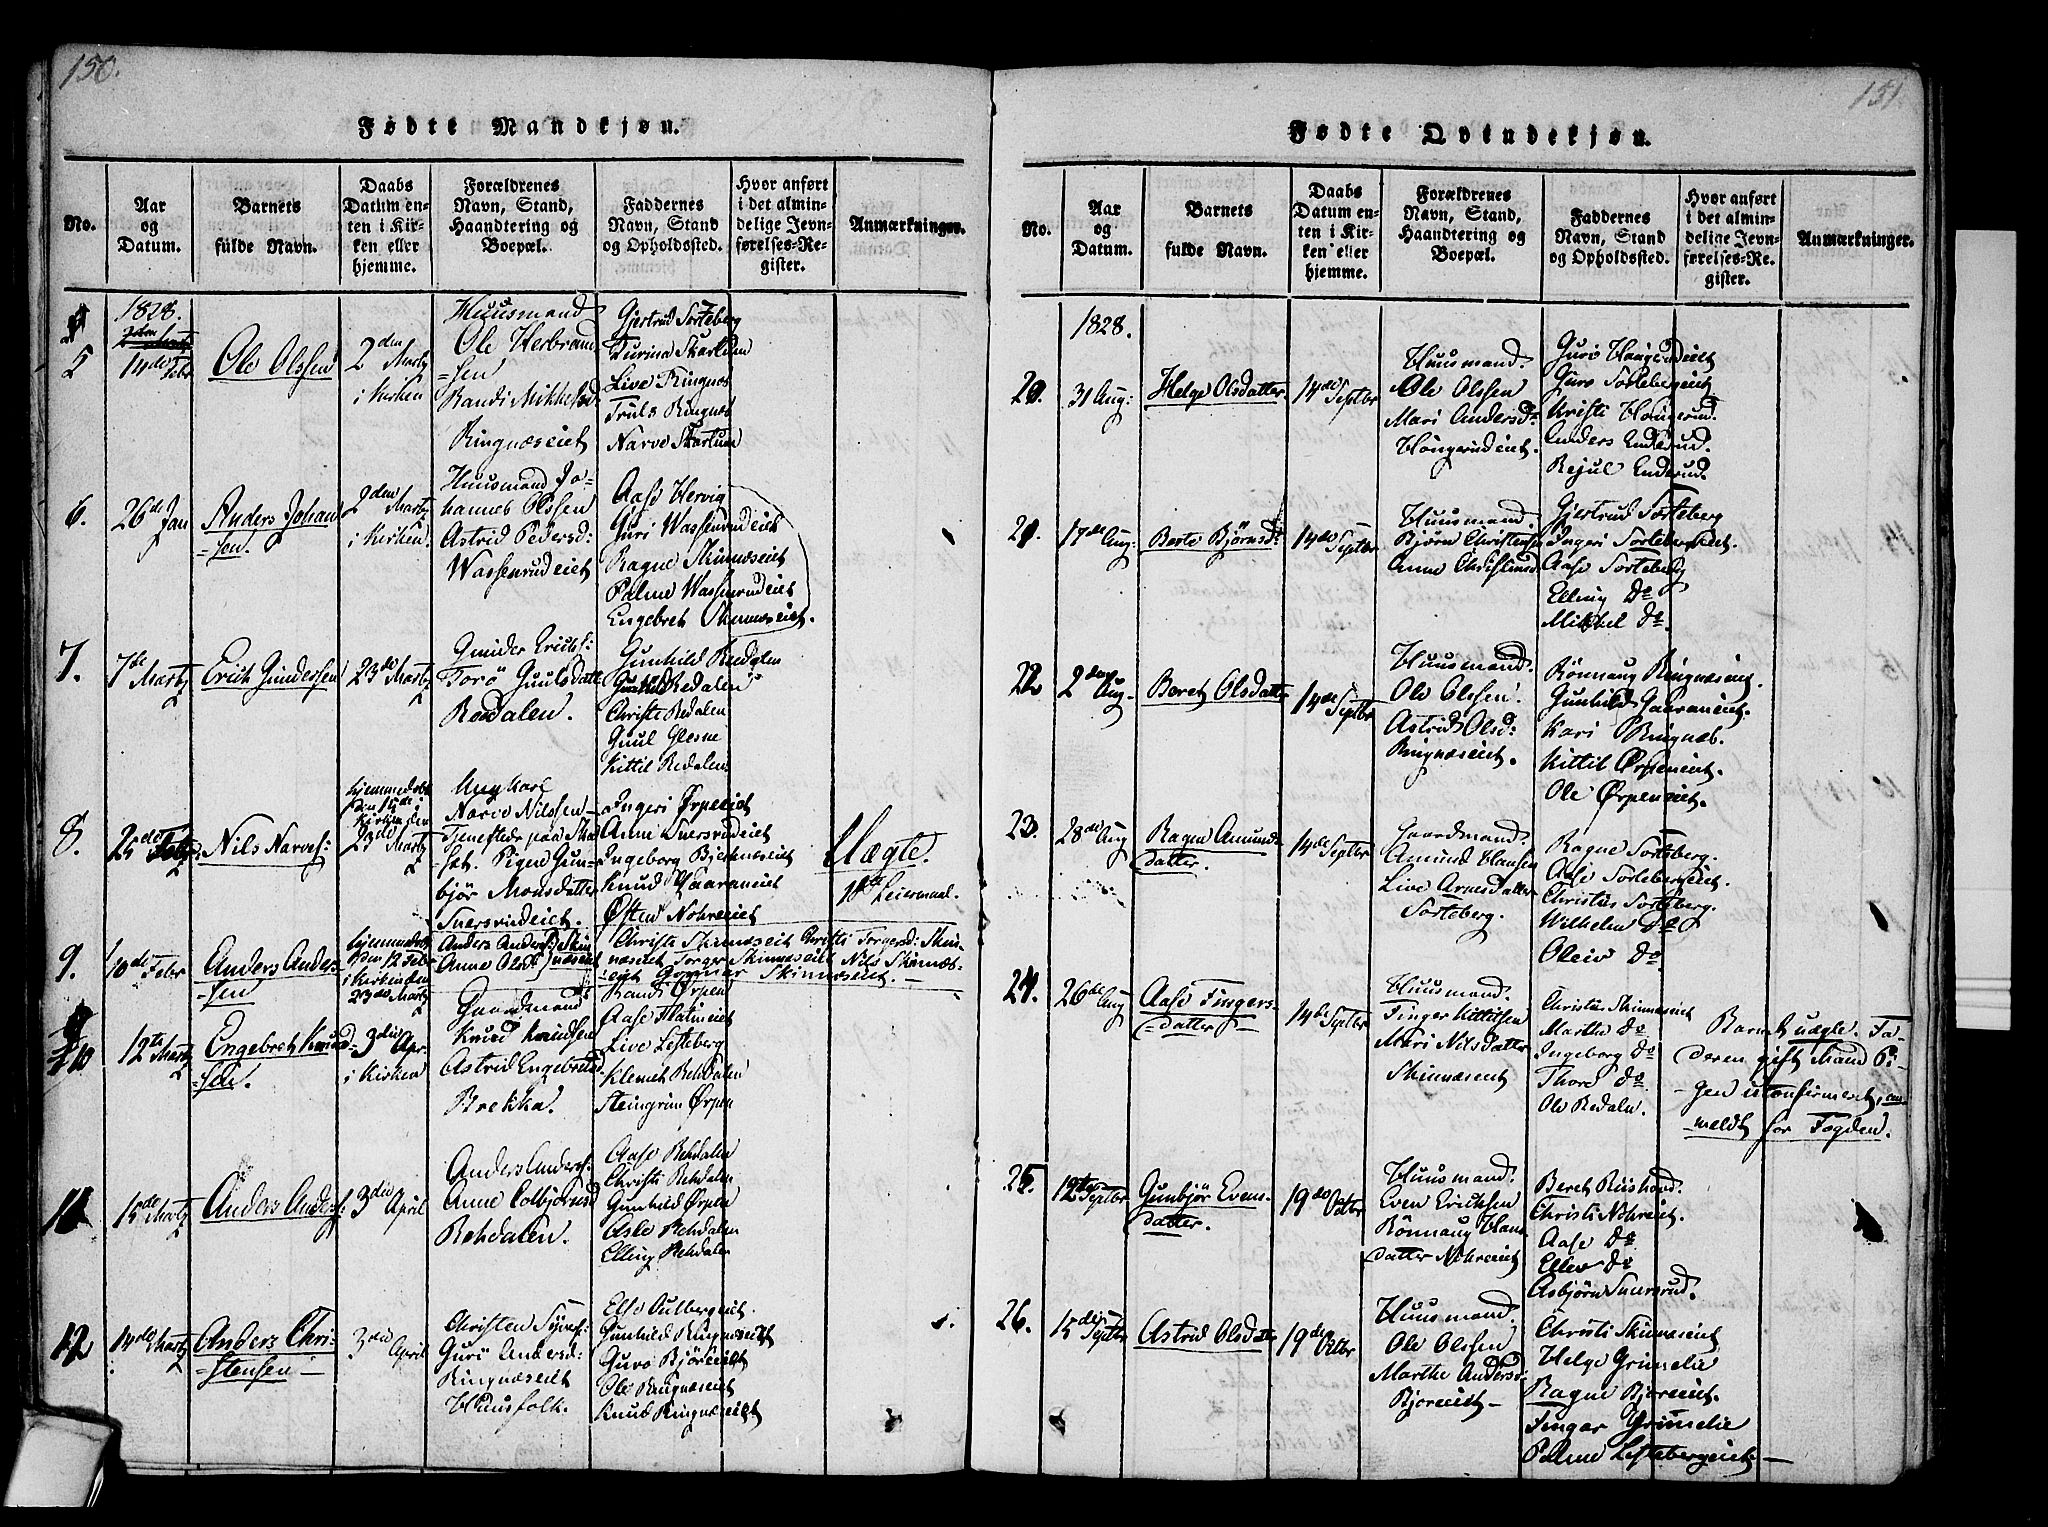 150.
Fødte Mandkjøn.
No.
Aar
og
Datum.
Barnets
fulde Navn.
Daabs
Datum en-
ten i Kir-
ken eller
hjemme.
Forældrenes
Navn, Stand,
Haandtering og
Boepæl.
Faddernes
Navn, Stand
og Opholdssted.
Hvor anført
i det almin-
delige Jevn-
førelses-Re-
gister.
Anmærkninger.
1828.
5
14de Febr
Ole Olssen
2den Martz
i Kirken
Huusmand
Ole Herbrand
-sen
Randi Mikkelsd:
Ringnæseiet
Gjertrud Sorteberg
Turina Skartum
Live Ringnæs
Truls Ringnæs
Narve Skartum
6.
26de Jan
Anders Johan
-sen.
2den Martz
i Kirken
Huusmand Jo-
hannes Olssen
Astrid Pedersd:
Wassenrudeiet
Aase Hervig
Guri Wassenrudeiet
Ragne Skinnæseiet
Palme Wassenrudeiet
Engebret Skinnæseiet.
7.
7de Martz
Erich Gundersen
23de Martz
Gunder Erichs:
Torö Guulsdatter
Redalen.
Gunhild Redalen
Gunhild Redalen
Christi Redalen
Guul Glesne
Kittil Redalen
8.
25de Febr
Nils Narves:
hjemmedøbt
den 15de i
Kirken den
23de Martz
Ung Karl
Narve Nilssen
Tjenestkar paa
Pigen Gun-
bjør Monsdatter
Suersrudeiet.
Ingeri Ørpeneiet
Anne Suersrudeiet
Ingeborg Bjerknæseiet
Knud Gaaraneiet
Østen Nohreeiet
Uægte.
1ste Leiermaal.
9.
10de Febr
Anders Anders-
-sen
hjemmedøbt
den 12 Febr
i Kirken den
23de Martz
Anders Anders: Skin
Anne Olsd: næseiet
Christi Skinnæseiet Christi Torgersd: Skin-
næseiet Torger Skinnæseiet Nils Skinnæs-
eiet Gunnar Skinnæseiet.
10
12te Martz
Engebret Knud-
-sen.
3die Apr.
i Kirken
Gaardmand
Knud Knudsen
Astrid Engebretsd.
Brekka.
Randi Ørpen
Aase Halmeiet
Live Lesteberg
Klemet Rehdalen
Steingrim Ørpen
11
15de Martz
Anders Anders:
3die April
Anders Anders:
Anne Colbjørnsd
Rehdalen.
Aase Rehdalen
Christi Rehdalen
Gunhild Ørpen
Asle Rehdalen
Elling Rehdalen
12
14de Martz
Anders Chri-
-stensen
3die April
Christen Syvers:
Guri Andersd:
Ringnæseiet
Huusfolk.
Else Aulbergeiet.
Gunhild Ringnæseiet
Guro Bjøreeiet
Ole Ringnæseiet
Knud Ringnæseiet
151.
Fødte Qvindekjøn.
No.
Aar
og
Datum.
Barnets
fulde Navn.
Daabs
Datum en-
ten i Kir-
ken eller
hjemme.
Forældrenes
Navn, Stand,
Haandtering og
Boepæl.
Faddernes
Navn, Stand
og Opholdssted.
Hvor anført
i det almin-
delige Jevn-
førelses-Re-
gister.
Anmærkninger.
1828.
20.
31 Aug:
Helge Olsdatter
14de Septbr
Huusmand.
Ole Olssen
Mari Andersd:
Haugerudeiet.
Guro Haugerudeiet
Guro Sortebergeiet
Kristi Haugerud.
Anders Enderud.
Rejul Enderud.
21.
17de Aug:
Berte Bjørnsd:
14de Septbr
Huusmand.
Bjørn Christensen
Anne Christensd.
Gjertrud Sorteberg
Ingeri Sortebergeiet.
Aase Sorteberg
Elling Do
Mikkel Do.
22
2den Aug.
Beret Olsdatter
14de Septbr
Huusmand.
Ole Olssen.
Astrid Olsd:
Ringnæseiet.
Rönnaug Ringnæseiet.
Gunhild Gaaraneiet.
Kari Ringnæs.
Kittil Ørpeneiet.
Ole Ørpeneiet.
23.
28de Aug
Ragne Amunds-
datter.
14de Septbr
Gaardmand.
Amund Hansen
Live Arnesdatter
Sorteberg.
Ragne Sorteberg.
Aase Sortebergeiet.
Christen Sorteberg.
Wilhelm Do
Oleiv Do
24.
26de Aug
Aase Fingers-
datter.
14de Septbr
Huusmand.
Finger Kittilsen
Mari Nilsdatter
Skinnæseiet
Christin Skinnæseiet
Marthe Do
Ingeborg Do
Thord Do.
Ole Redalen.
Barnet uægte. Fa-
deren gift Mand Pi-
gen uconfirmeret, an-
meldt for Fogden.
25.
12te Septbr
Gunbjör Evens-
datter.
19de Octbr
Huusmand.
Even Erichsen
Rönnaug Hans
datter Nohreeiet
Beret Riishovd.
Christi Nohreeiet.
Aase Do
Ellev Do
Asbjørn Suersrud.
26.
15de Septbr
Astrid Olsdatter
19de Octbr
Huusmand.
Ole Olssen
Marthe Andersd
Bjøreeiet
Christi Skinnæseiet
Helge Grimelie
Ragne Bjøreeiet.
Finger Grimelie
Palme Lestebergeiet